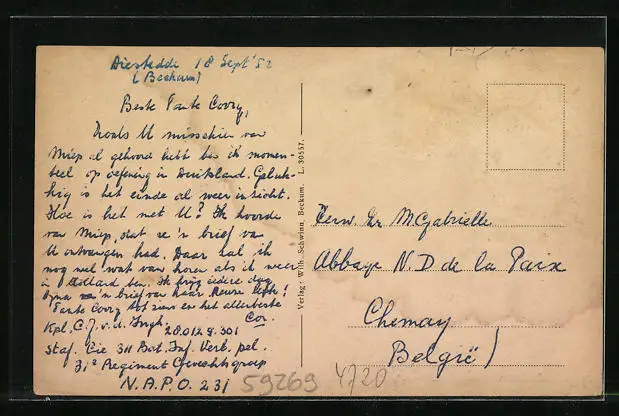 Diestedde 18 Sept '52
(Beckum)
Beste Tante Corry,
Zoals U misschien van
Miep al gehoord hebt ben ik momen-
teel op oefening in Duitsland. Geluk-
kig is het einde al weer in zicht.
Hoe is het met U? Ik hoorde
van Miep, dat ze 'n brief van
U ontvangen had. Daar zal ik
nog wel wat van horen als ik weer
in Holland ben. Ik krijg iedere dag
bijna 'n brief van haar.
Tante Corry tot ziens en het allerbeste
Cor.
Kpl. C. J. v. d.
28.01.29.301
Staf. Cie 311 Bat. Inf. Verb. pel.
31e Regiment Gevechtsgroep
N.A.P.O. 231
59269 4720
Verlag: Wilh. Schwinn, Beckum. L. 30557.
Eerw. Zr M. Gabrielle
Abbaye N. D. de la Paix
Chemay
België)